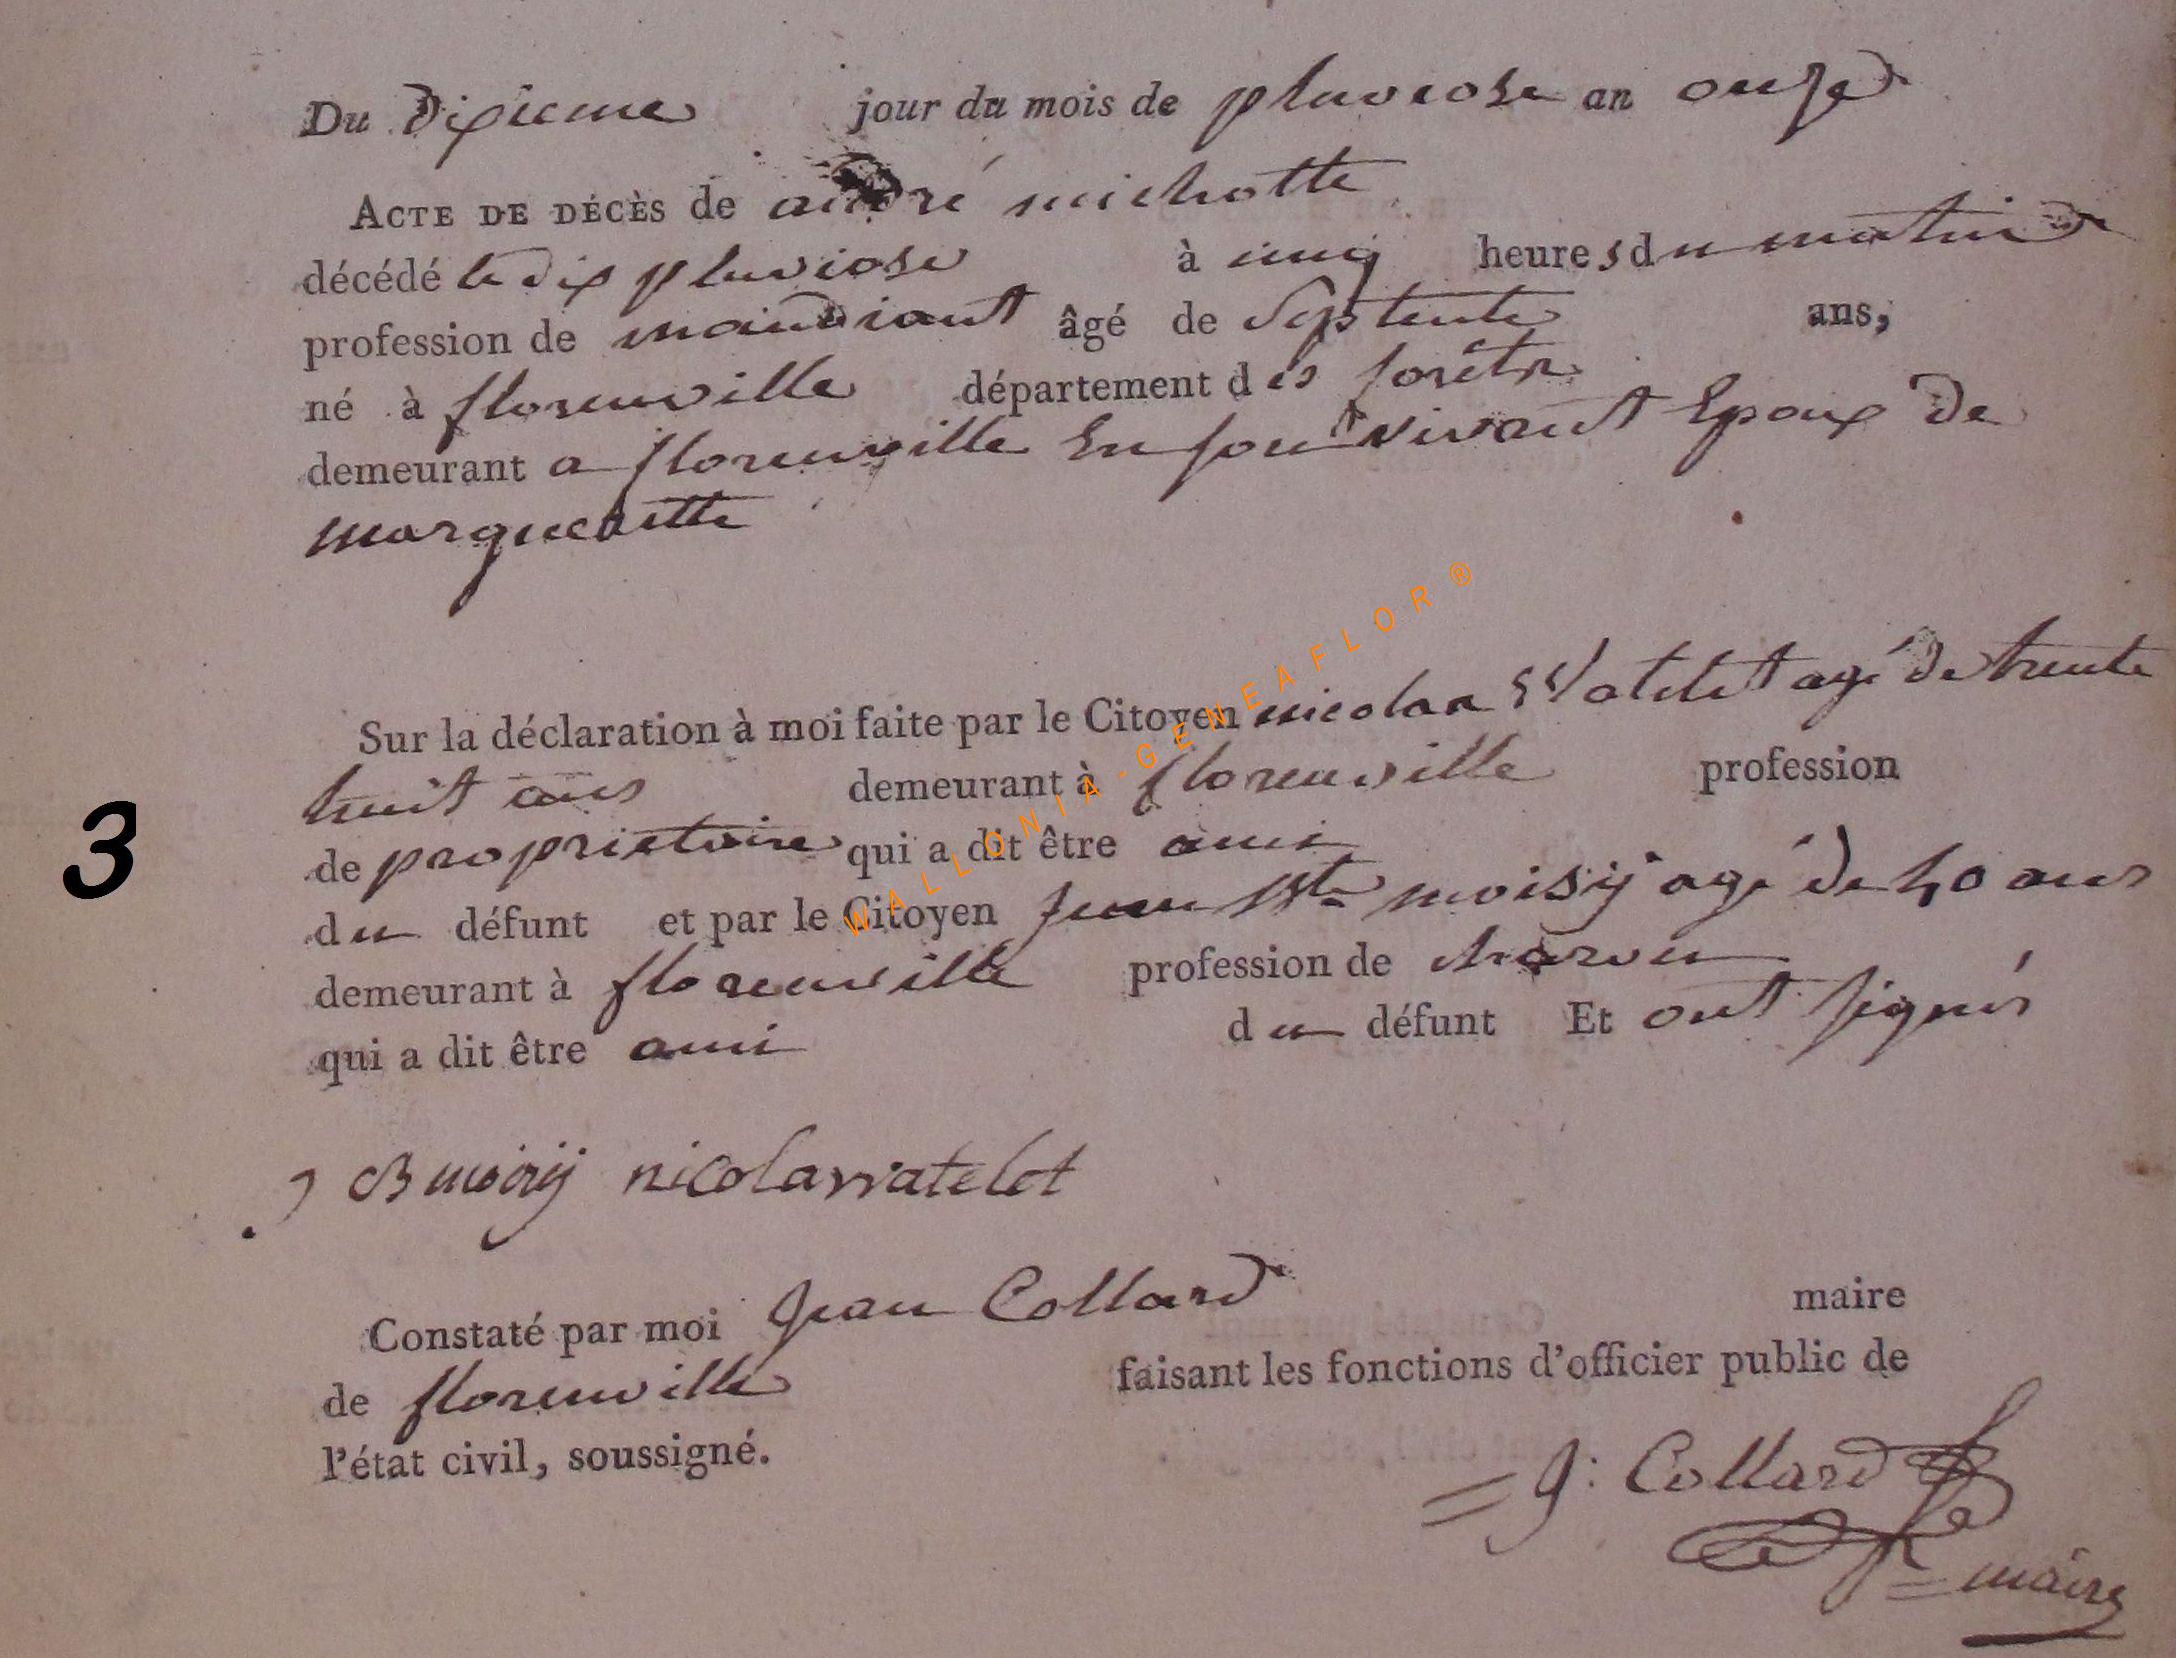 Du dixieme jour du mois de pluviose an onze
ACTE DE DÉCÈS de andré michotte
décédé le dix pluviose à cinq heures du matin
profession de mandiant âgé de septente ans,
né à florenville département des forêts
demeurant a florenville En son vivant Epoux de
marguerite
Sur la déclaration à moi faite par le Citoyen nicolas Watelet agé de trente
huit ans demeurant à florenville profession
de proprietaire qui a dit être ami
du défunt et par le Citoyen Jean Bte moisÿ agé de 40 ans
demeurant à florenville profession de charon
qui a dit être ami du défunt Et ont signés
J CB moisij nicolas watelet
Constaté par moi Jean Collard maire
de florenville faisant les fonctions d'officier public de
l'état civil, soussigné.
= J: Collard
= maire
3
WALLONIA-GENEAFLOR®